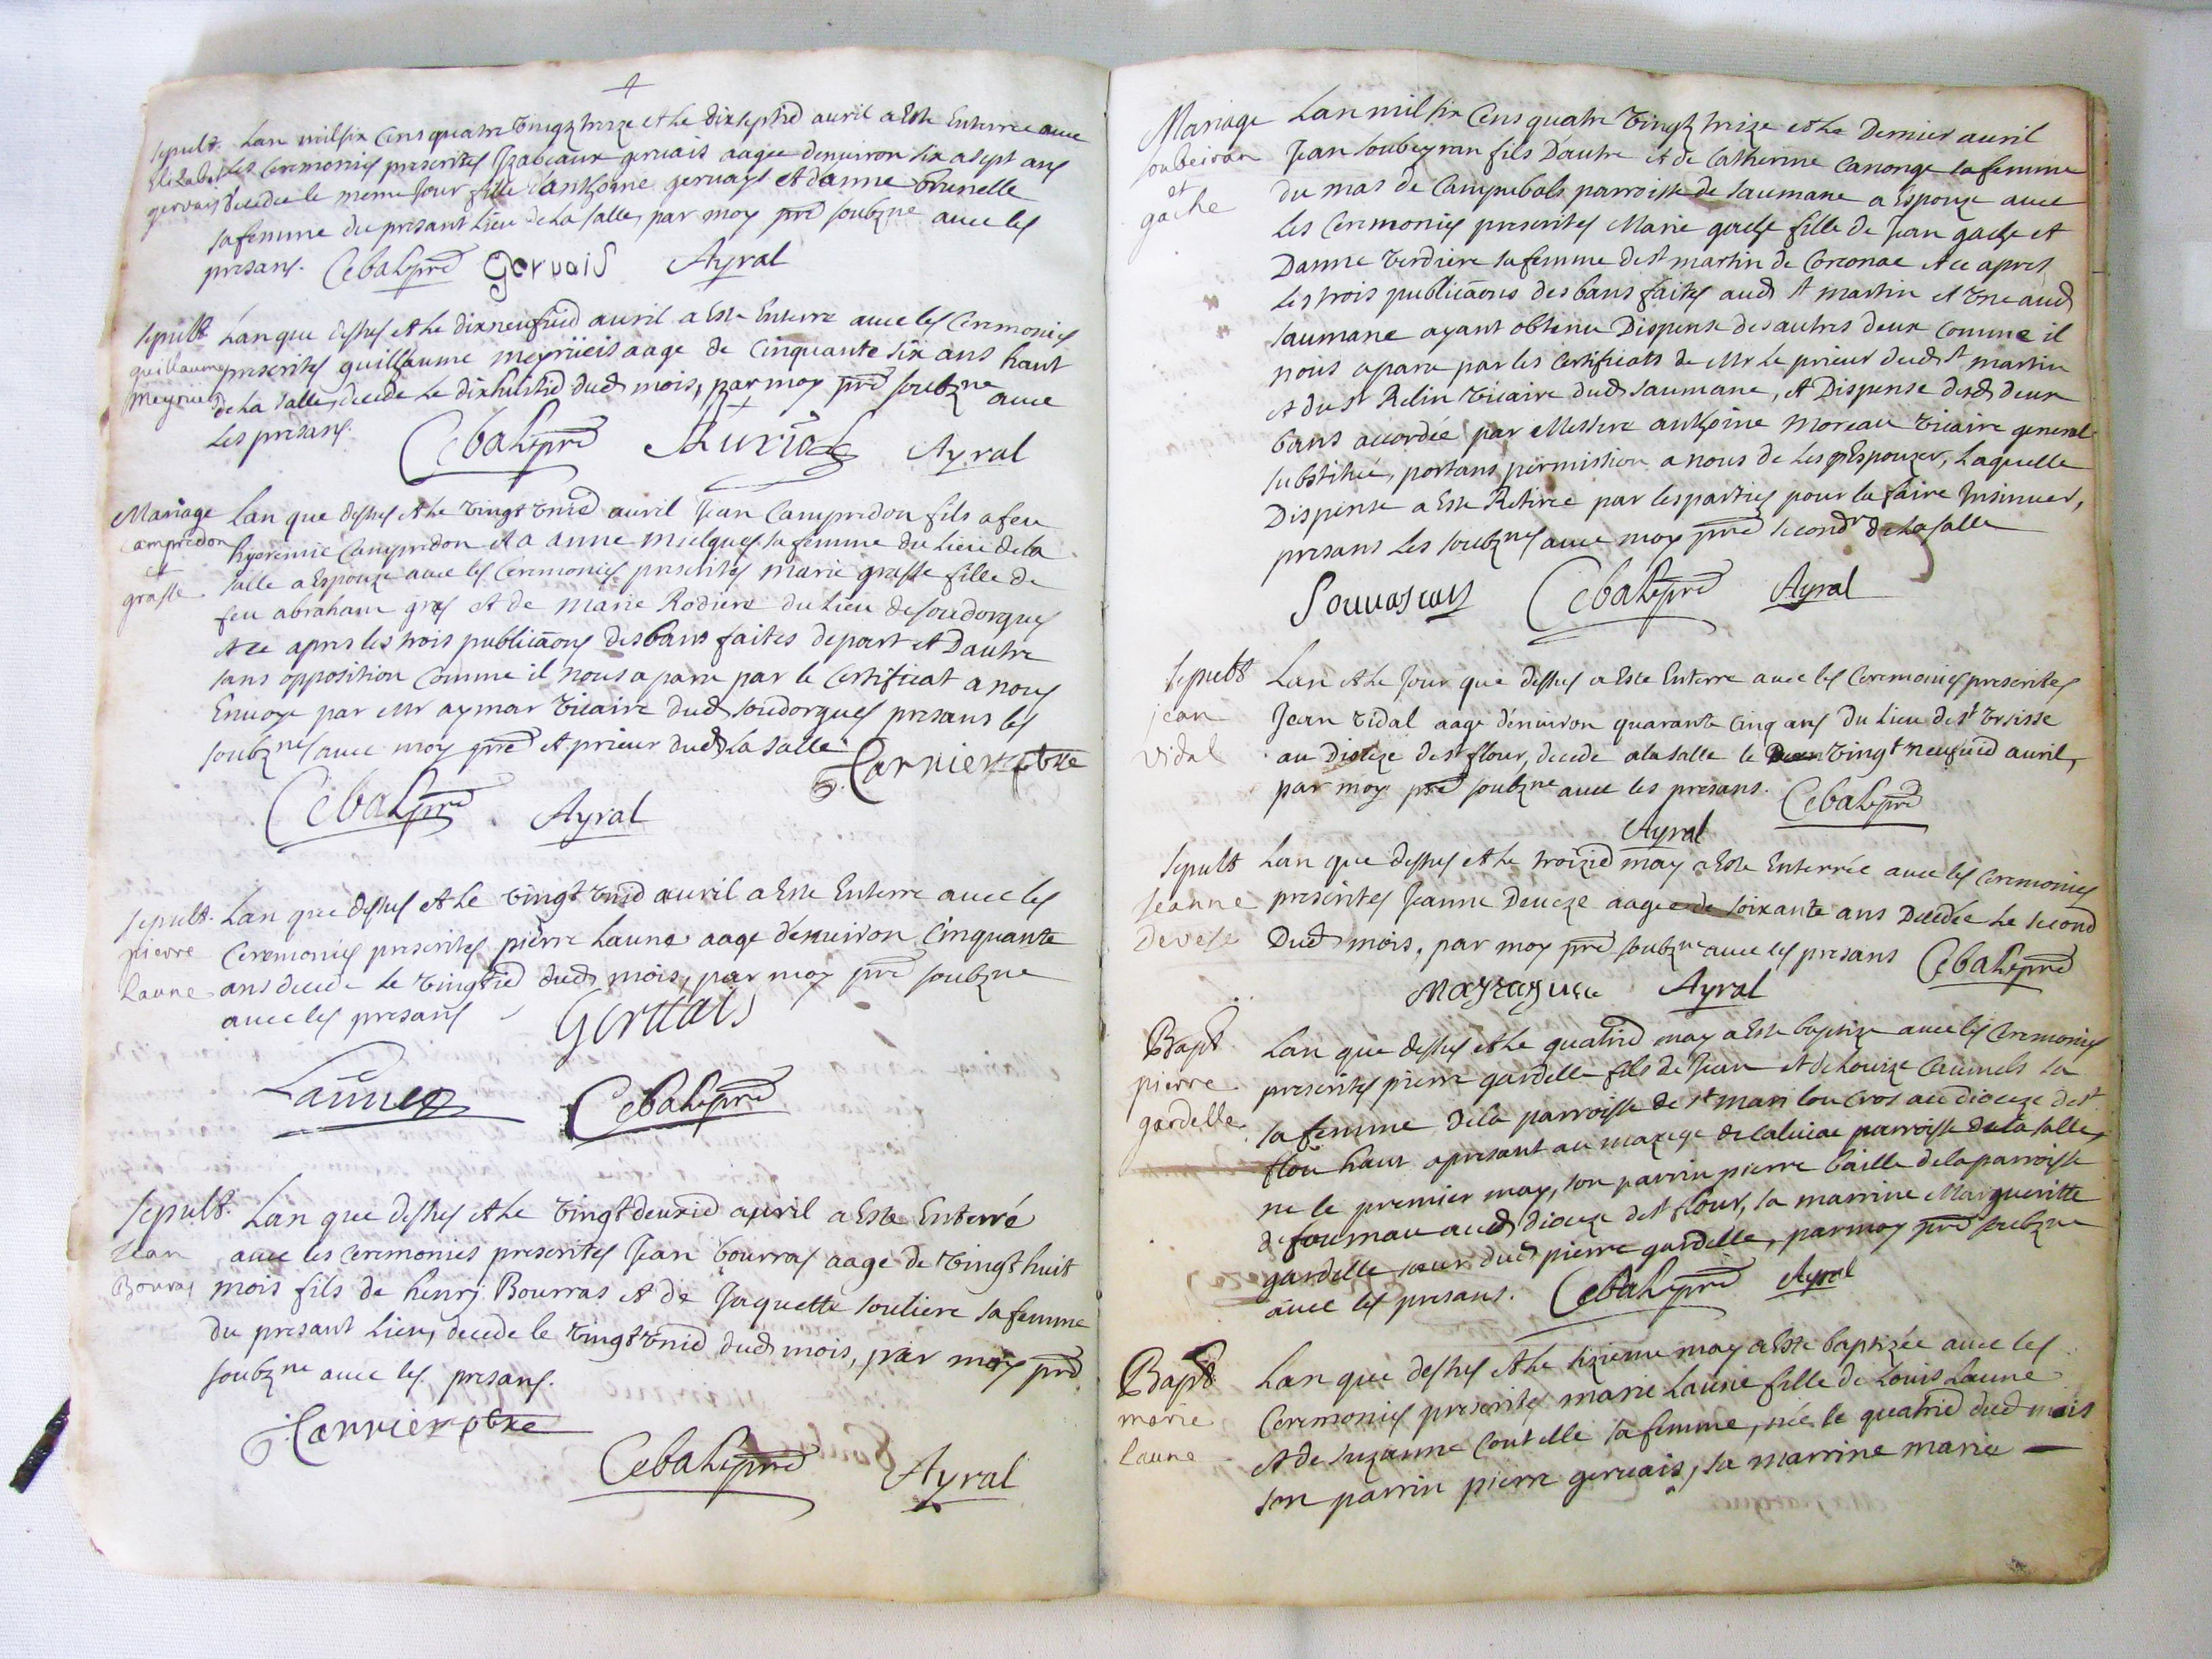 sepult. Lan mil six Cens quatre vingtz treze et le dixseptie avril a este Enterree avec
Elizabet les Ceremonies prescrites Izabeaux gervais aagee denviron six a sept ans
gervais decedee le meme jour fille d'anthoine gervays et danne brunelle
sa femme du presant Lieu de La salle, par moy pre soubzne avec les
presans. Cebalh pre Gervais Ayral
sepult Lan que dessus et le dixneufvie avril a Este Enterre avec les Ceremonies
guillaume prescrites guillaume meyrueis aage de Cinquante six ans haut
meyrueis de La salle, decede Le dixhuitie dud mois, par moy pre soubzne avec
Les presans.
Cebalh pre Ayral
Mariage Lan que dessus et le vingt unie avril Jean Campredon fils a feu
Campredon hyeremie Campredon et a anne mielgues sa femme du Lieu de la
et salle a Espouze avec les Ceremonies prescrites marie grasse fille de
grasse feu abraham gras et de Marie Rodiere du Lieu de soudorgues
et ce apres les trois publicãons des bans faites de part et Dautre
sans opposition Comme il nous a paru par le Certificat a nous
Envoye par Mr aymar vicaire dud soudorgues presans les
soubznes avec moy pre et prieur dud La salle Carrier pbre
Cebalh pre Ayral
sepult. Lan que dessus et Le vingt unie avril a Este Enterre avec les
pierre Ceremonies prescrites pierre Laune aage denviron Cinquante
Laune ans decede le vingtie dud mois, par moy pre soubzne
avec les presans Gervais
Launes Cebalh pre
sepult. Lan que dessus et Le vingt deuxie avril a Este Enterré
Jean avec les Ceremonies prescrites Jean bourras aage de vingt huit
Bourras mois fils de henrj Bourras et de Jaquette souliere sa femme
du presant Lieu, decede le vingt unie dud mois, par moy pre
soubzne avec les presans.
Carrier pbre
Cebalh pre Ayral
Mariage Lan mil six Cens quatre vingtz treize et Le Dernier avril
soubeiran Jean soubeyran fils Dautre et de Catherine Canonge sa femme
et du mas de Campribals parroisse de saumane a Espouze avec
gache Les Ceremonies prescrites Marie gache fille de Jean gache et
Danne verdiere sa femme de st martin de Corconac et ce apres
Les trois publicãons des bans faites aud st martin et une aud
saumane ayant obtenu Dispense des autres deux Comme il
nous a paru par les Certificats de Mr le prieur dud st martin
et du sr Relin vicaire dud saumane, et Dispense desd deux
bans accordée par Messire anthoine Moreau vicaire general
substitué, portans permission a nous de Les Espouzer, Laquelle
Dispense a Este Retiree par les parties pour la faire Insinuer,
presans Les soubznes avec moy pre secondre de La salle
Cebalh pre Ayral
sepult Lan et Le Jour que dessus a Este Enterre avec les Ceremonies prescrites
jean Jean vidal aage denviron quarante Cinq ans du Lieu de st
vidal au Diocize de st flour, decede a la salle le vingt neufvie avril,
par moy pre soubzne avec les presans. Cebalh pre
Ayral
sepult Lan que dessus et Le troizie may a Este Enterrée avec les Ceremonies
Jeanne prescrites Jeanne Deveze aagee de soixante ans Decedée Le second
Devese Dud mois, par moy pre soubzne avec les presans Cebalh pre
Ayral
Bapt Lan que dessus et Le quatrie may a Este baptize avec les Ceremonies
pierre prescrites pierre gardelle fils de Jean et de Louize sa
gardelle sa femme de la parroisse de st mari lou Cros au dioceze de st
flou haut a presant au mazage de Calviac parroisse de la salle,
ne le premier may, son parrin pierre baille de la parroisse
de aud dioceze de st flour, sa marrine Margueritte
gardelle sœur dud pierre gardelle, par moy pre soubzne
avec les presans. Cebalh pre Ayral
Bapt Lan que dessus et Le sizieme may a Este baptizée avec les
marie Ceremonies prescrites marie Laune fille de Louis Laune
Laune et de suzanne Coutelle sa femme, née le quatrie dud mois
son parrin pierre gervais, sa marrine marie —